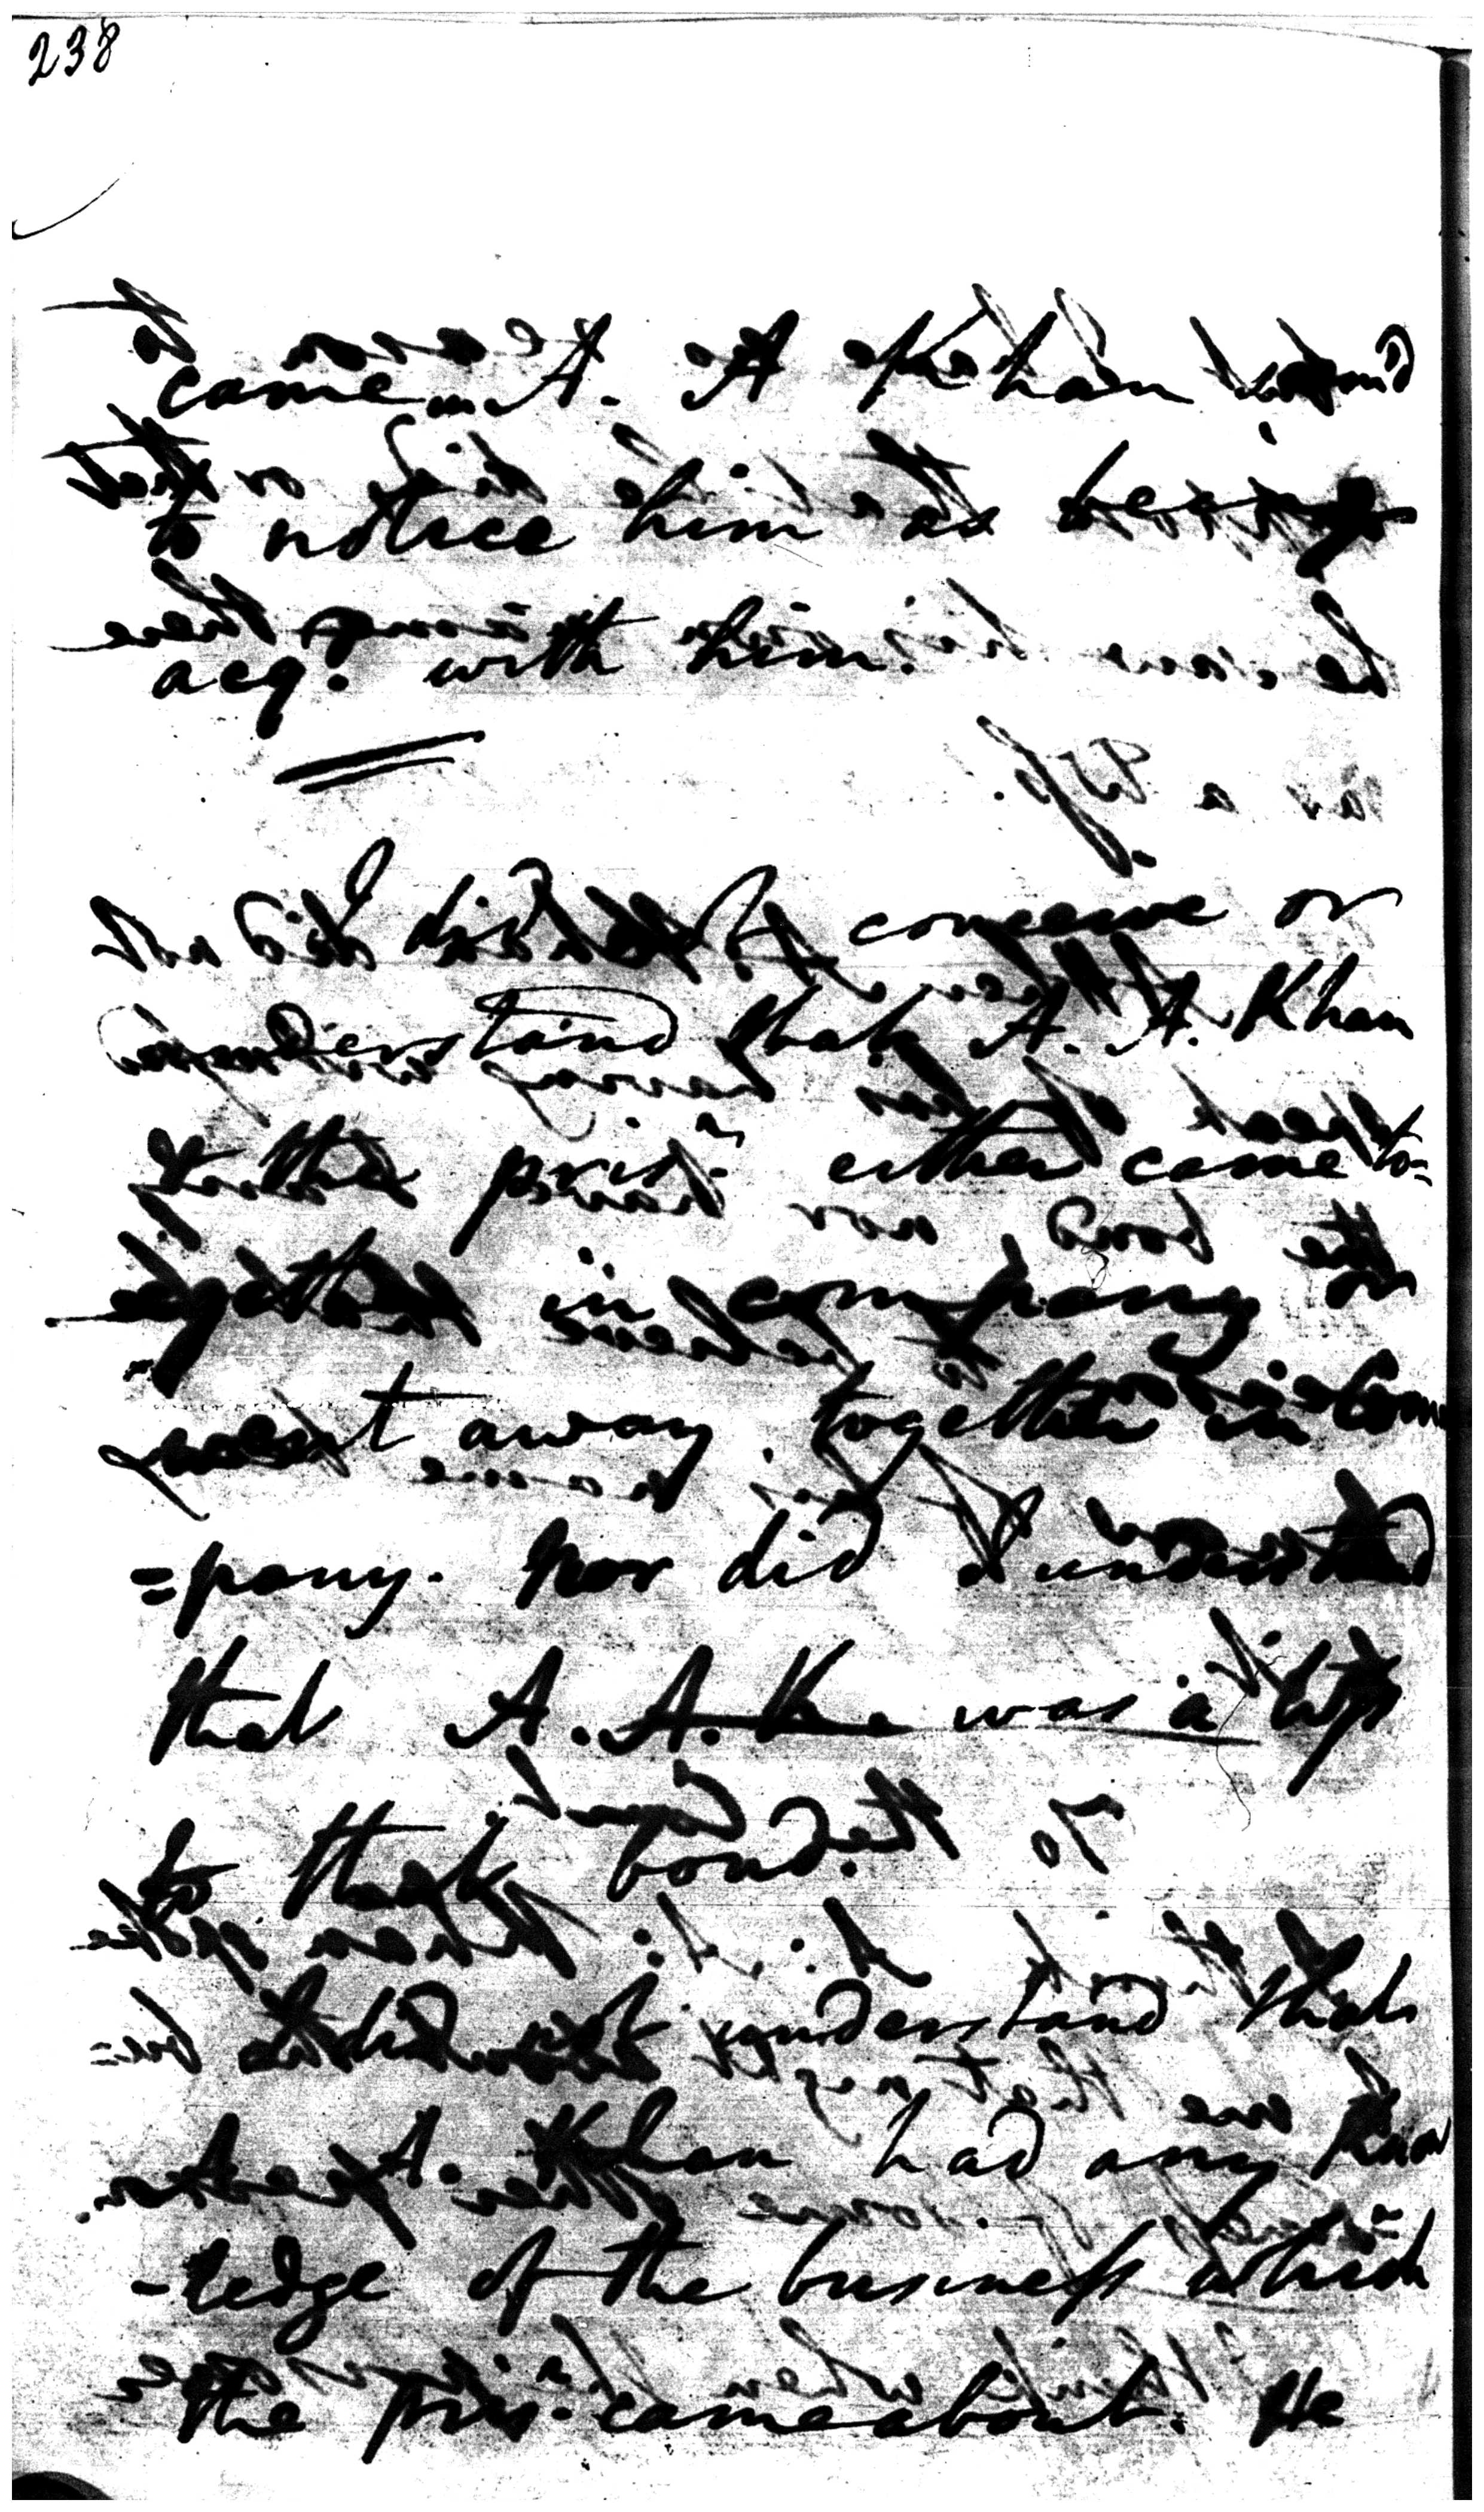 238
came in A. A Khan
to notice him as being
acq.d with him.
I did not conceive or
understand that A. A. Khan
the pris.r either came to=
gether in company or
went away together in Com
=pany. Nor did I understand
that A. A. K. was a
to that bond.
I did not understand that
A. Khan had any know
-ledge of the business which
the pris.r came about. He